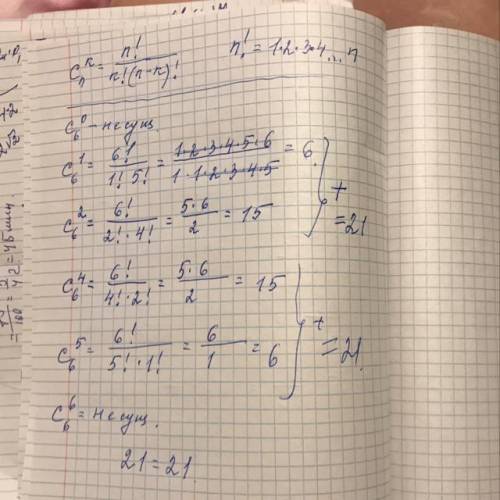 C_n^k = n! / k!(n-k)!   n! = 1·2·3·4...n
C_6^0 - не сущ.
C_6^1 = 6! / 1! 5! = 1·2·3·4·5·6 / 1·1·2·3·4·5 = 6
C_6^2 = 6! / 2!·4! = 5·6 / 2 = 15
+ = 21
C_6^4 = 6! / 4!·2! = 5·6 / 2 = 15
C_6^5 = 6! / 5!·1! = 6 / 1 = 6
+ = 21
C_6^6 = не сущ.
21 = 21